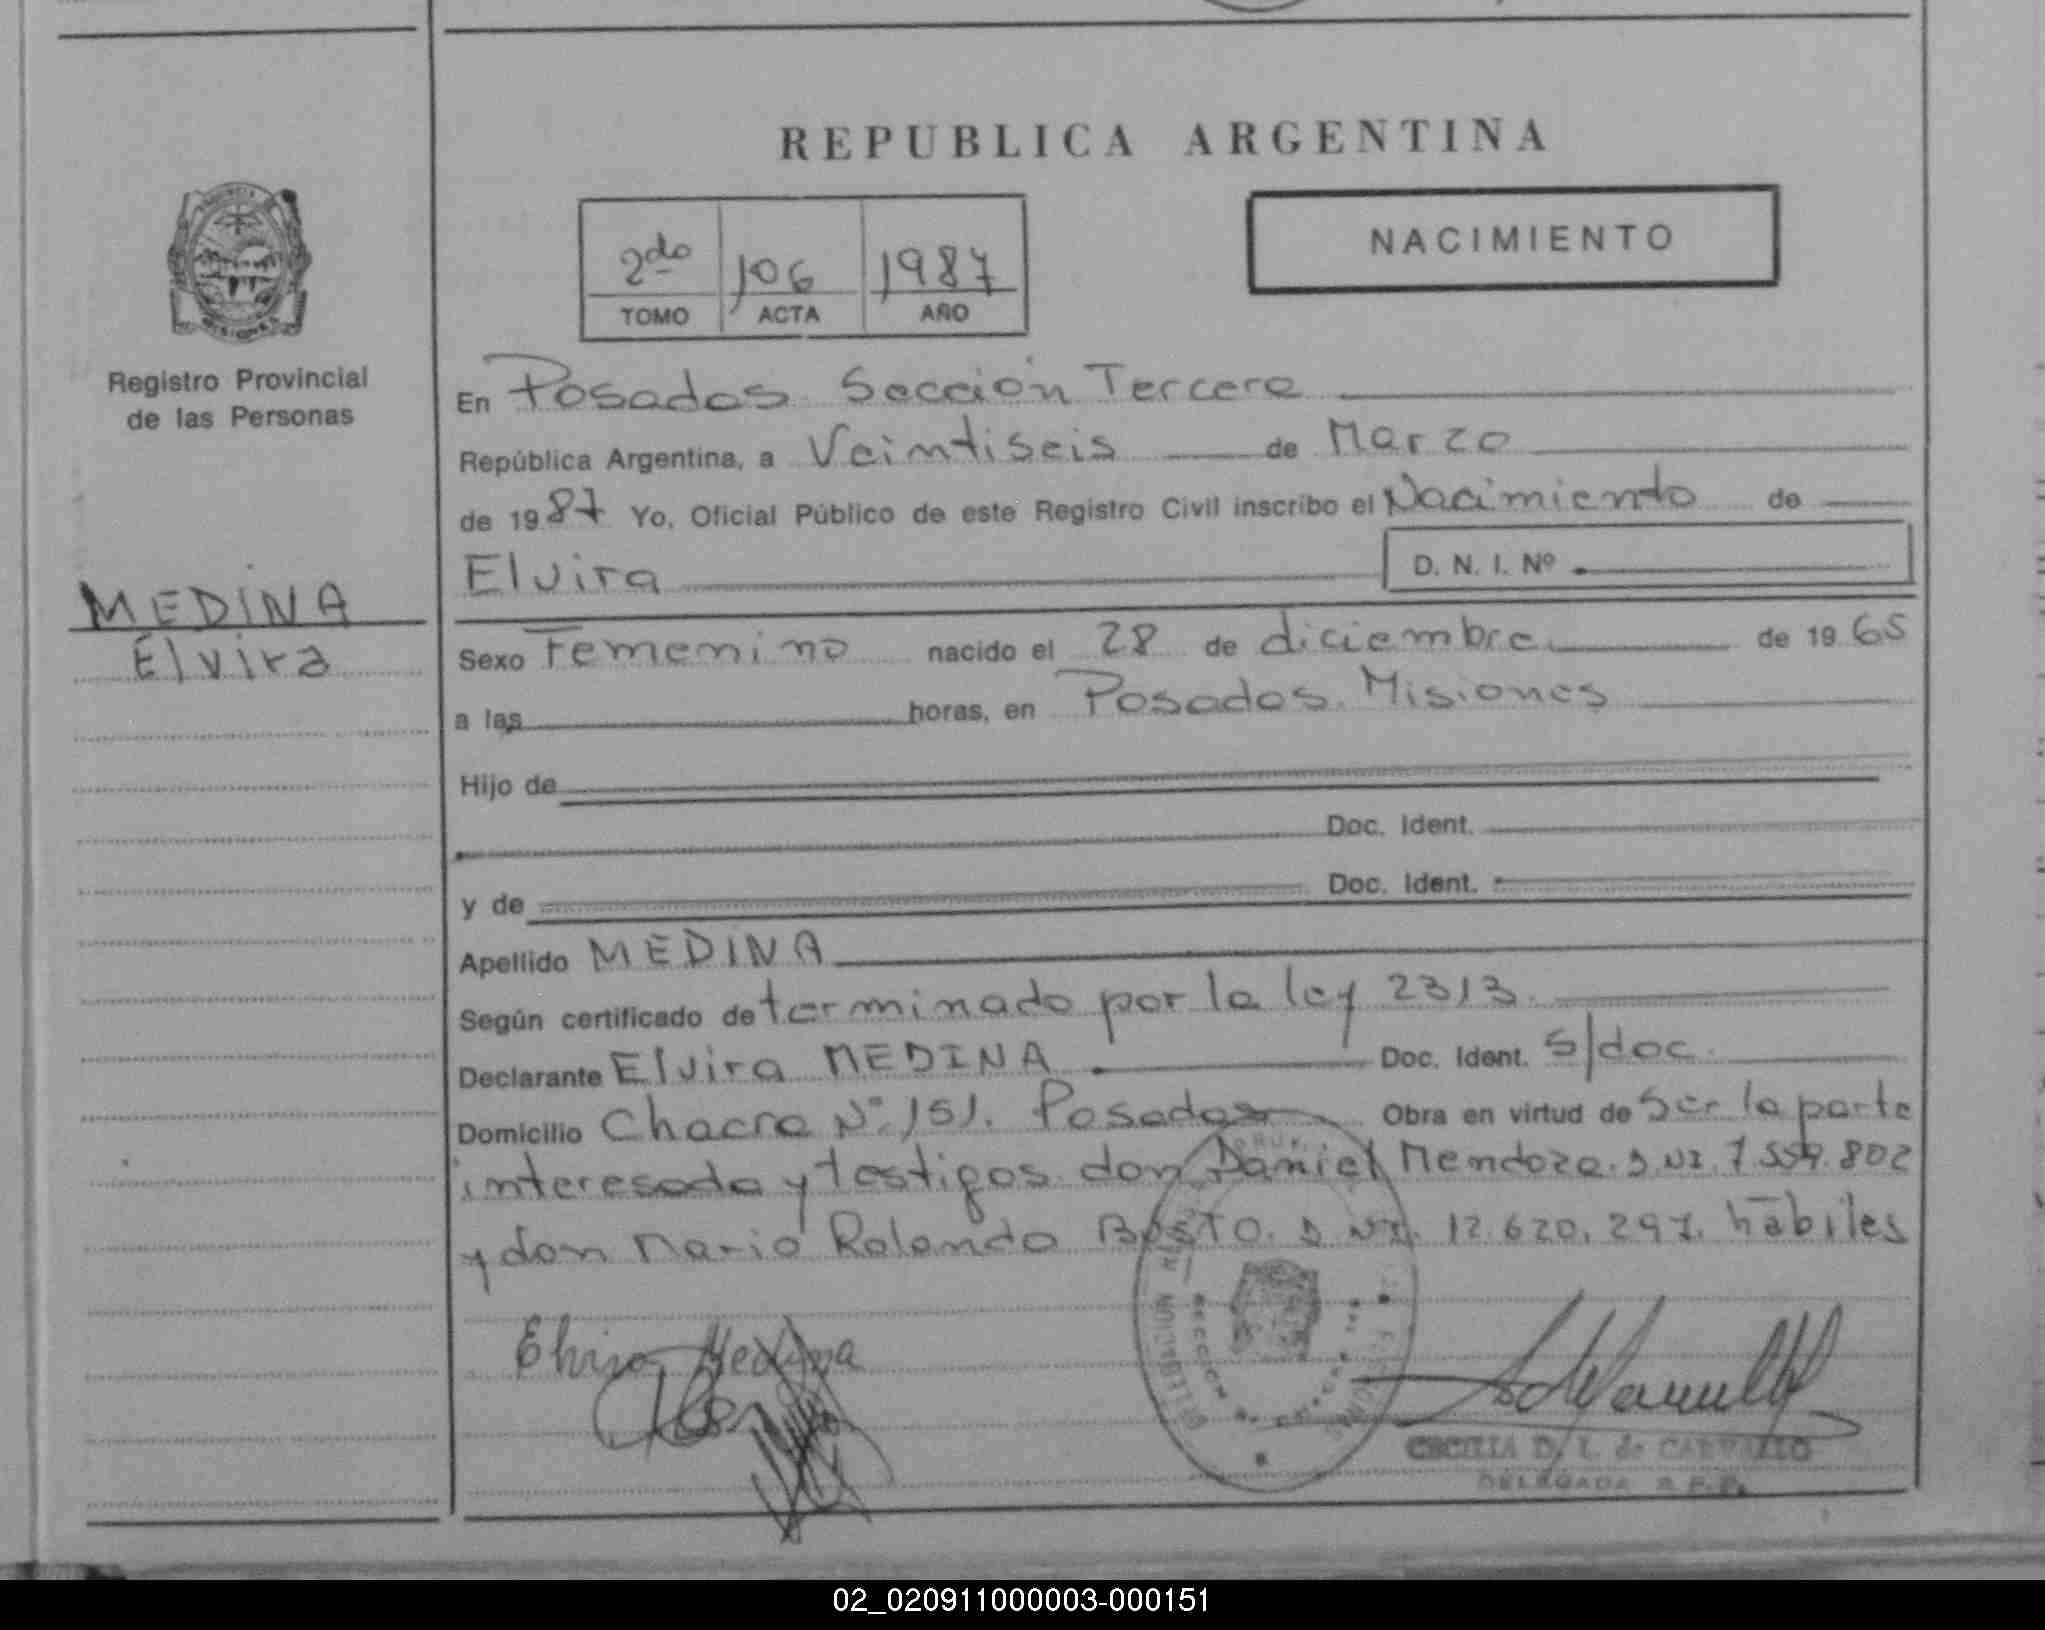 REPUBLICA ARGENTINA
2do 106 1987
TOMO ACTA AÑO
NACIMIENTO
MISIONES
Registro Provincial
de las Personas
MEDINA
Elvira
En Posadas Sección Tercera
República Argentina, a Veintiseis de Marzo
de 1987 Yo, Oficial Público de este Registro Civil inscribo el Nacimiento de
Elvira D. N. I. Nº
Sexo Femenino nacido el 28 de diciembre de 1965
a las horas, en Posadas. Misiones
Hijo de
Doc. Ident.
y de Doc. Ident.
Apellido MEDINA
Según certificado determinado por la ley 2313.
Declarante Elvira MEDINA Doc. Ident. s/doc.
Domicilio Chacra Nº 151. Posadas Obra en virtud de Ser la parte
interesada y testigos don Daniel Mendoza. DNI. 7.559.802
y don Mario Rolando DNI. 12.620.297. hábiles
Elvira Medina
CECILIA D. L. de CARVALLO
DELEGADA R.P.P.
02_020911000003-000151